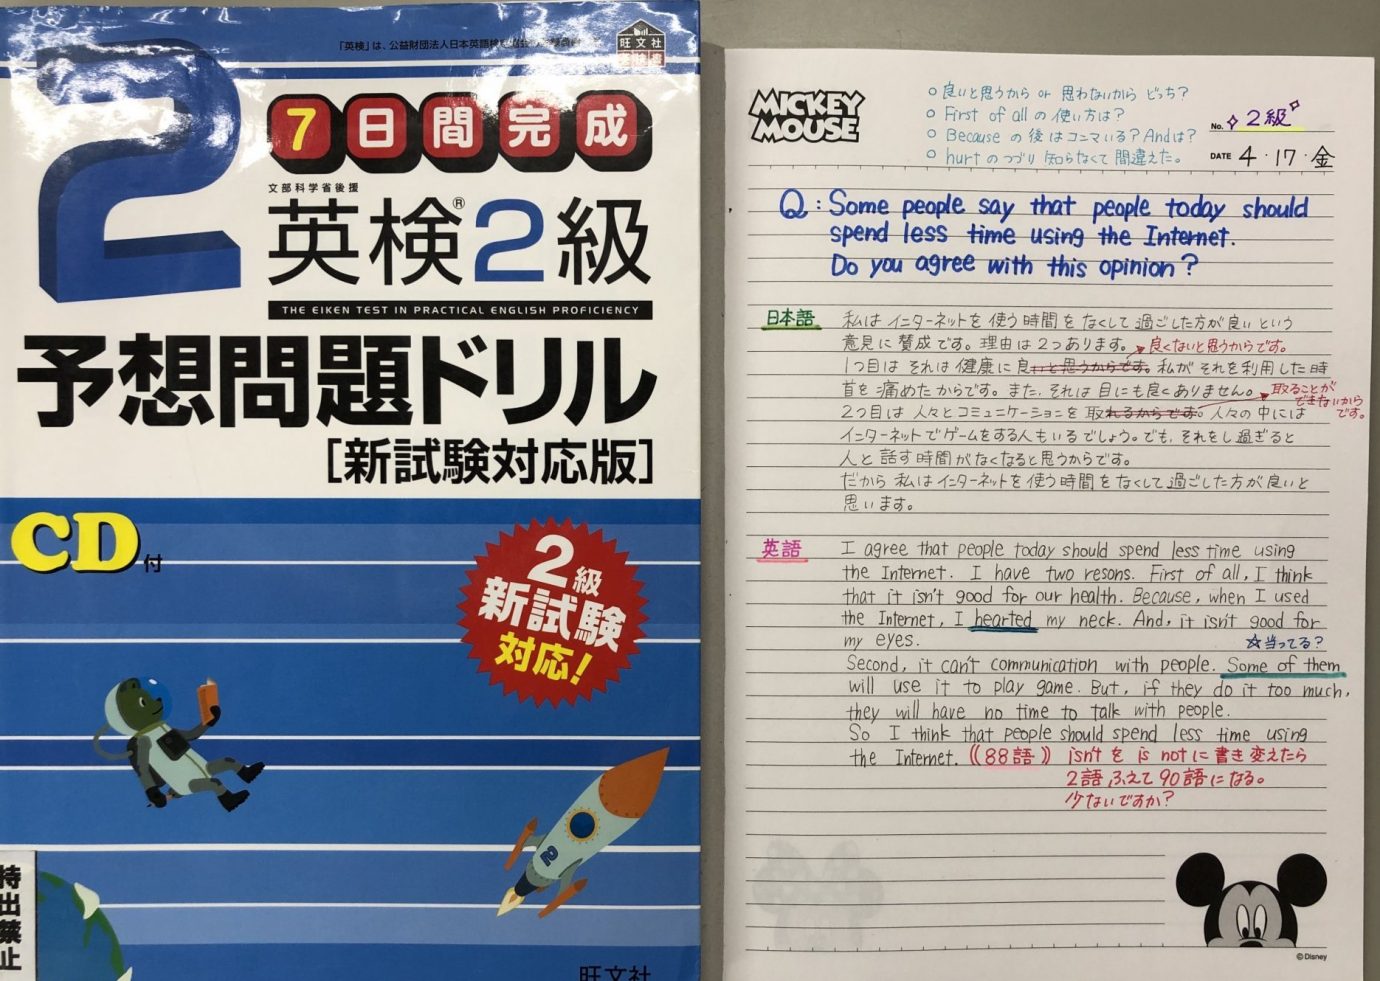 2
旺文社
7日間完成
文部科学省後援
英検®2級
THE EIKEN TEST IN PRACTICAL ENGLISH PROFICIENCY
予想問題ドリル
[新試験対応版]
CD付
2級
新試験
対応!
2
持出禁止
旺文社
MICKEY
MOUSE
○ 良いと思うから or 思わないから どっち?
○ First of all の 使い方は?
○ Because の 後は コンマいる? Andは?
○ hurt の つづり 知らなくて 間違えた。
No. 2級
DATE 4・17・金
Q: Some people say that people today should
spend less time using the Internet.
Do you agree with this opinion?
日本語
私は インターネットを 使う時間を なくして 過ごした方が良い という
意見に 賛成です。理由は 2つあります。
良くないと思うからです。
1つ目は それは 健康に 良いと思うからです。私が それを利用した時
首を 痛めたからです。また、それは 目にも良くありません。
取ることが
できないから
です。
2つ目は 人々とコミュニケーションを 取れるからです。人々の中には
インターネットでゲームをする人もいるでしょう。でも、それをし過ぎると
人と 話す 時間がなくなると思うからです。
だから 私はインターネットを 使う 時間を なくして 過ごした 方が 良いと
思います。
英語
I agree that people today should spend less time using
the Internet. I have two resons. First of all, I think
that it isn't good for our health. Because, when I used
the Internet, I hearted my neck. And, it isn't good for
my eyes.
☆当ってる?
Second, it can't communication with people. Some of them
will use it to play game. But, if they do it too much,
they will have no time to talk with people.
So I think that people should spend less time using
the Internet. ((88語)) isn'tを is notに書き変えたら
2語ふえて90語になる。
少ないですか?
©Disney